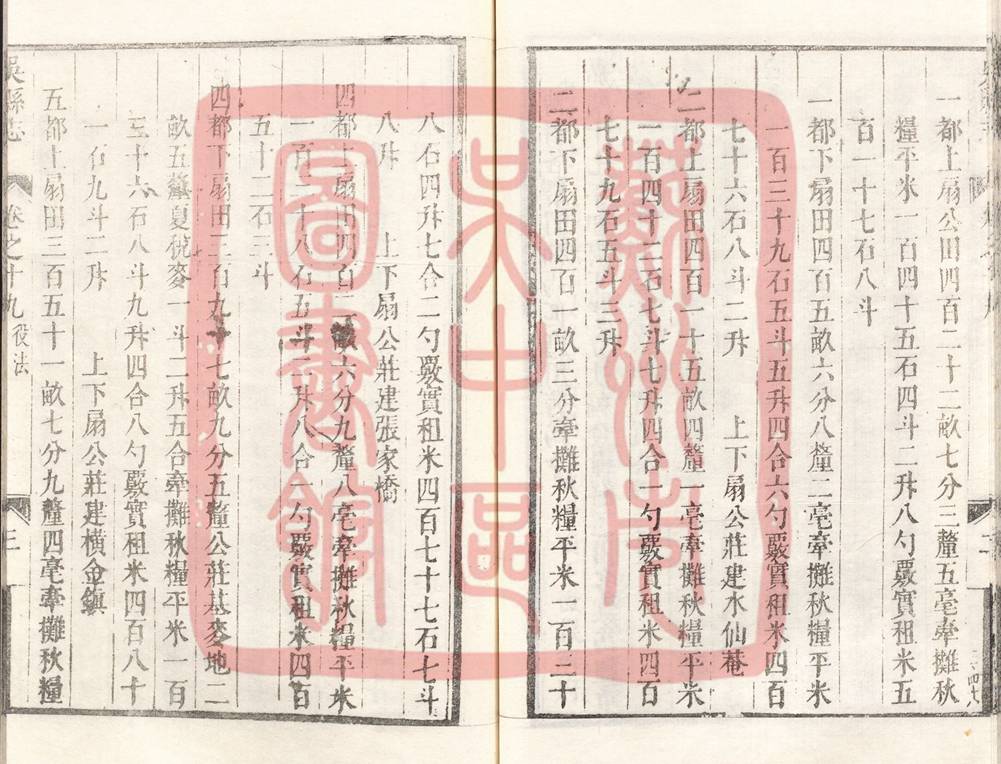 一都上扇公田四百二十二畝七分三釐五毫牽攤秋
糧平米一百四十五石四斗二升八勺覈實租米五
百一十七石八斗
一都下扇田四百五畝六分八釐二毫牽攤秋糧平米
一百三十九石五斗五升四合六勺覈實租米四百
七十六石八斗二升　上下扇公莊建水仙菴
二都上扇田四百一十五畝四釐一毫牽攤秋糧平米
一百四十二石七斗七升四合一勺覈實租米四百
七十九石五斗三升
二都下扇田四百一畝三分牽攤秋糧平米一百三十
八石四升七合二勺覈實租米四百七十七石七斗
八升　上下扇公莊建張家橋
四都上扇田四百二畝六分九釐八毫牽攤秋糧平米
一百三十八石五斗二升八合一勺覈實租米四百
五十二石三斗
四都下扇田三百九十七畝九分五釐公莊基麥地二
畝五釐夏稅麥一斗二升五合牽攤秋糧平米一百
三十六石八斗九升四合八勺覈實租米四百八十
一石九斗二升　上下扇公莊建橫金鎮
五都上扇田三百五十一畝七分九釐四毫牽攤秋糧
吳縣志　卷之十九　役法　三
蘇州市
吳中區
圖書館